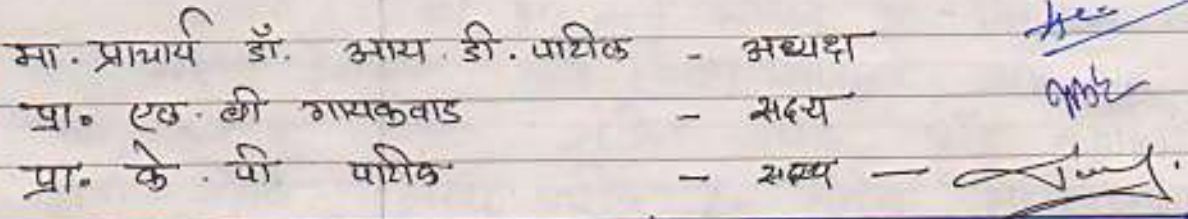 मा. प्राचार्य डॉ. आय. डी. पाटील - अध्यक्ष
प्रा. एल. बी गायकवाड - सदस्य
प्रा. के. पी पाटील - सदस्य -